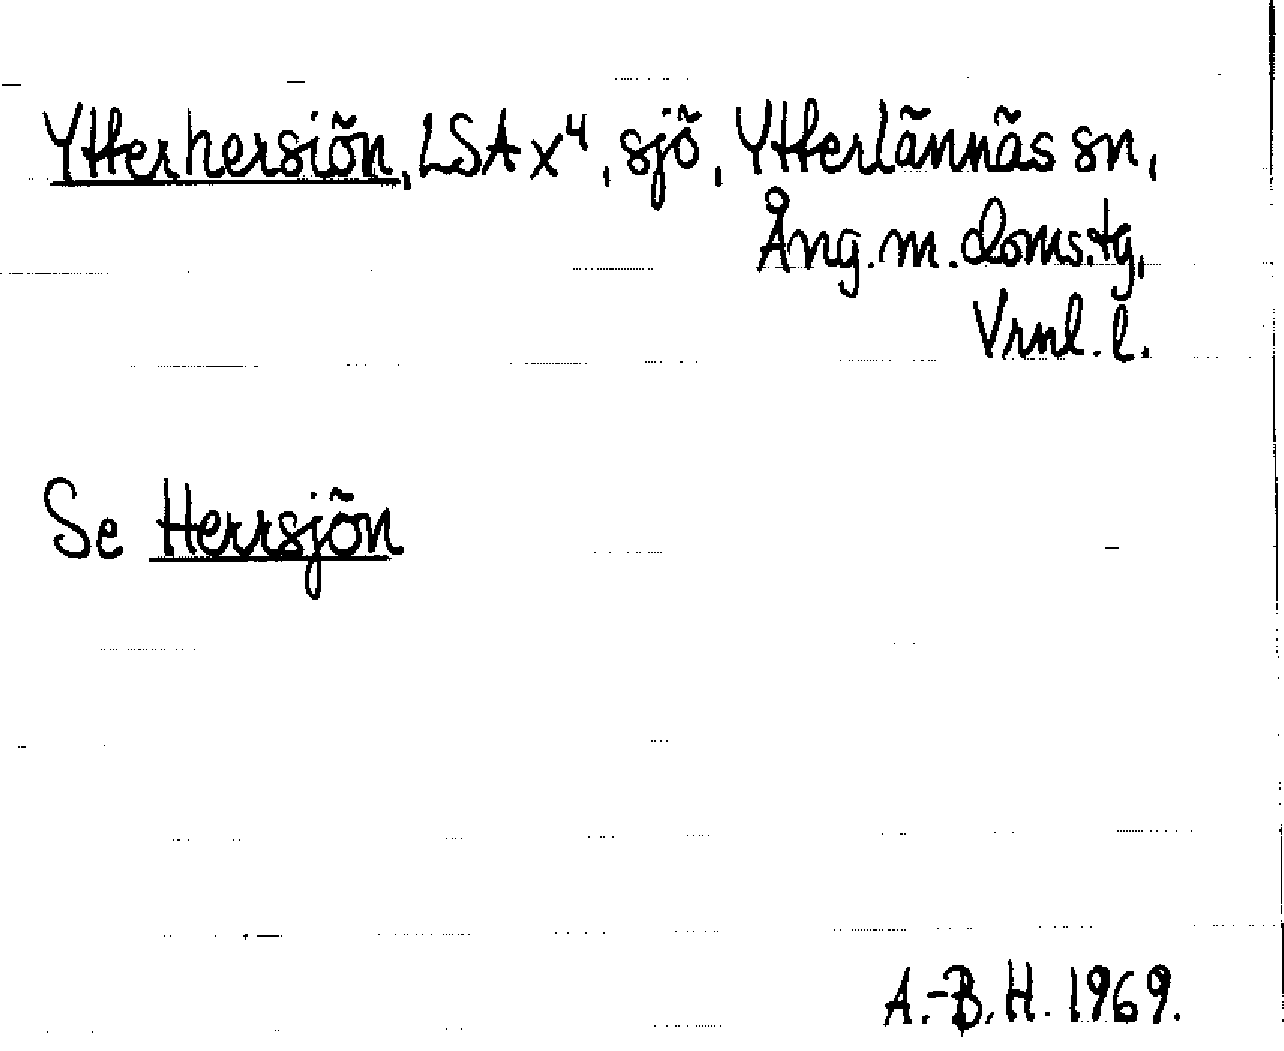 Ytterhersiön, LSA x⁴, sjö, Ytterlännäs sn,
Ång. m. doms.tg,
Vrnl. l.
Se Herrsjön
A.-B. H. 1969.